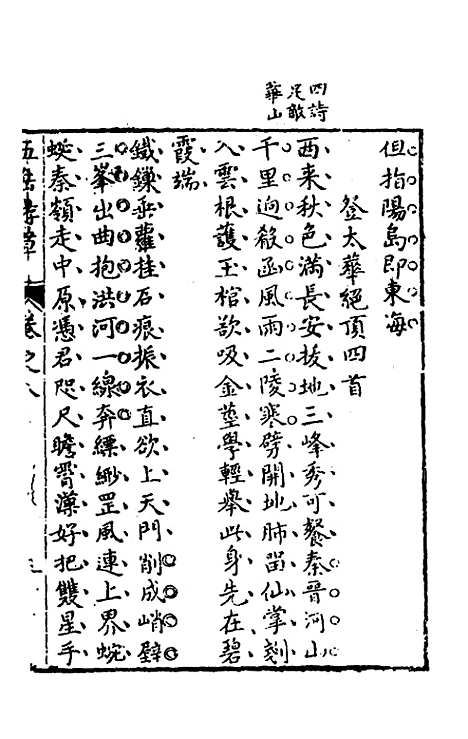 四詩
足敵
華山
但指陽鳥即東海
登太華絕頂四首
西来秋色滿長安拔地三峰秀可餐秦晉河山
千里逈殽函風雨二陵寒劈開地肺留仙掌刻
入雲根護玉棺欲吸金莖學輕舉此身先在碧
霞端
鐵鏁垂蘿挂石痕振衣直欲上天門削成峭壁
三峯出曲抱洪河一線奔縹緲罡風連上界蜿
蜒秦嶺走中原憑君咫尺瞻霄漢好把雙星手
卷之八